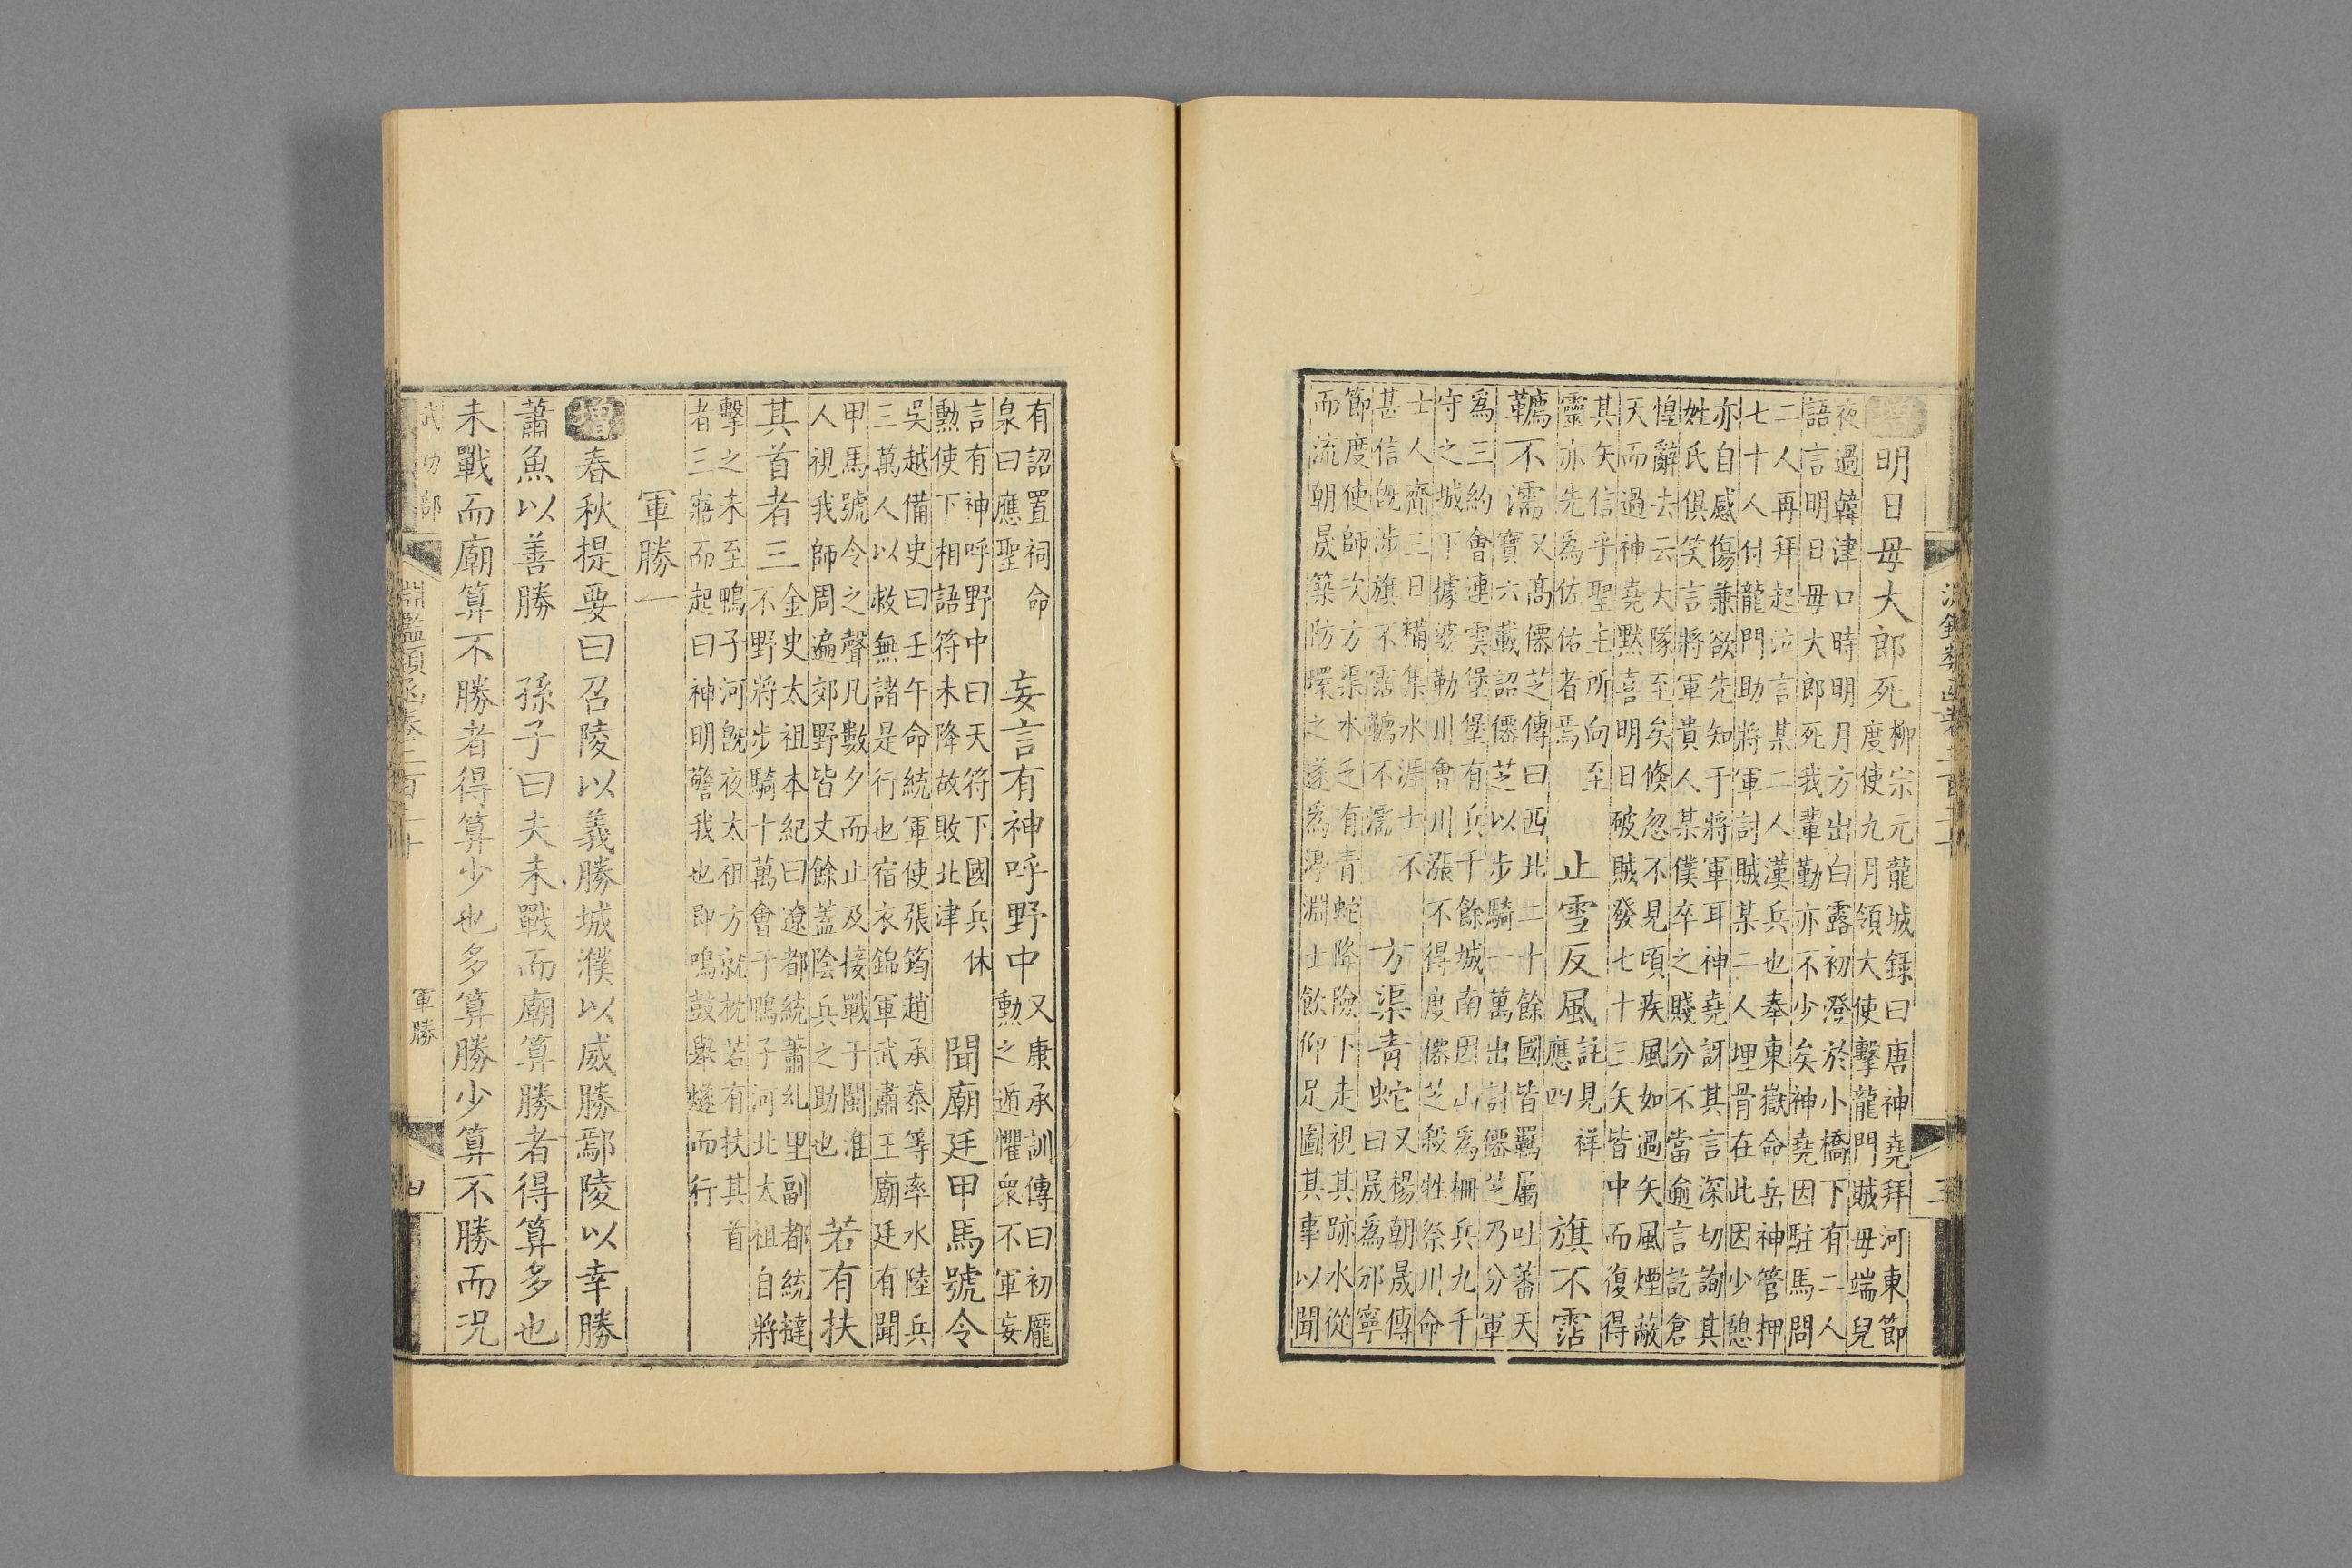 增
明日毋大郎死
柳宗元龍城錄曰唐神堯拜河東節
度使九月領大使擊龍門賊毋端兒
夜過韓津口時明月方出白露初澄於小橋下有二人
語言明日毋大郎死我輩勤亦不少矣神堯因駐馬問
二人再拜起泣言某二人漢兵也奉東嶽命岳神管押
七十人付龍門助將軍討賊某二人埋骨在此因少憩
亦自感傷兼欲先知于將軍耳神堯訝其言深切詢其
姓氏俱笑言將軍貴人某僕卒之賤分不當逾言訖倉
惶辭去云大隊至矣倏忽不見頃疾風如過矢風煙蔽
天而過神堯默喜明日破賊發七十三矢皆中而復得
其矢信乎聖主所向至
靈亦先為佐佑者焉
止雪反風
註見祥
應四
旗不霑
韉不濡
又高僊芝傳曰西北二十餘國皆羈屬吐蕃天
寶六載詔僊芝以步騎一萬出討僊芝乃分軍
為三約會連雲堡堡有兵千餘城南因山為柵兵九千
守之城下據婆勒川會川漲不得度僊芝殺牲祭川命
士人齎三日糒集水涯士不
甚信既涉旗不霑韉不濡
方渠青蛇
又楊朝晟傳
曰晟為邠寧
節度使師次方渠水乏有青蛇降險下走視其跡水從
而流朝晟築防環之遂為渟淵士飲仰足圖其事以聞
有詔置祠命
泉曰應聖
妄言有神呼野中
又康承訓傳曰初龐
勲之遁懼衆不軍妄
言有神呼野中曰天符下國兵休
勲使下相語符未降故敗北津
聞廟廷甲馬號令
吳越備史曰壬午命統軍使張筠趙承泰等率水陸兵
三萬人以救無諸是行也宿衣錦軍武肅王廟廷有聞
甲馬號令之聲凡數夕而止及接戰于閩淮
人視我師周遍郊野皆丈餘蓋陰兵之助也
若有扶
其首者三
金史太祖本紀曰遼都統蕭糺里副都統撻
不野將步騎十萬會于鴨子河北太祖自將
擊之未至鴨子河既夜太祖方就枕若有扶其首
者三寤而起曰神明警我也即鳴鼓舉燧而行
軍勝一
增
春秋提要曰召陵以義勝城濮以威勝鄢陵以幸勝
蕭魚以善勝
孫子曰夫未戰而廟算勝者得算多也
未戰而廟算不勝者得算少也多算勝少算不勝而況
武功部
淵鑑類函卷二百二十
軍勝
四